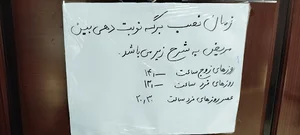 زمان نصب برگ نوبت دهی بین
مریض به شرح زیر می باشد.
روزهای زوج ساعت ۱۴:۰۰
روزهای فرد ساعت ۱۳:۰۰
عصر روزهای فرد ساعت ۲۰:۳۰